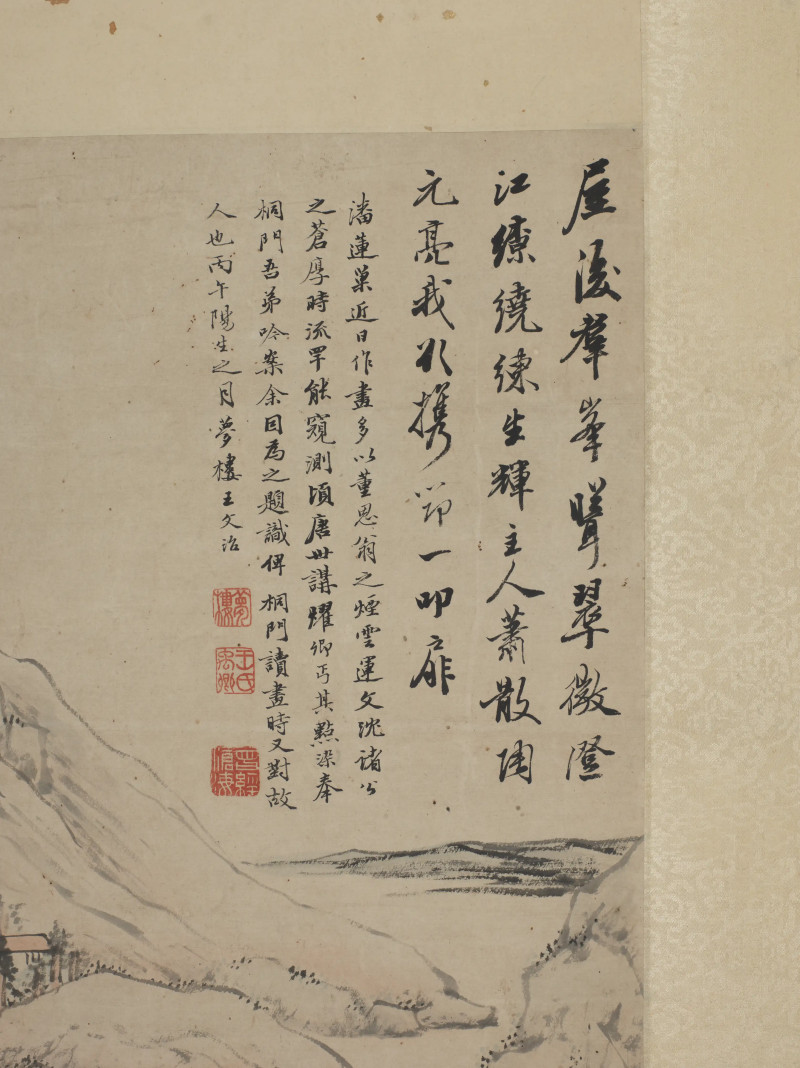 屋後群峯聳翠微澄
江繚繞練生輝主人蕭散陶
元亮我欲攜筇一叩扉
潘蓮巢近日作畫多以董思翁之煙雲運文沈諸公
之蒼厚時流罕能窺測頃唐世講躍卿丐其點染奉
桐門吾弟吟案余因為之題識俾 桐門讀畫時又對故
人也丙午陽生之月夢樓王文治
夢樓
王氏禹卿
曾經滄海